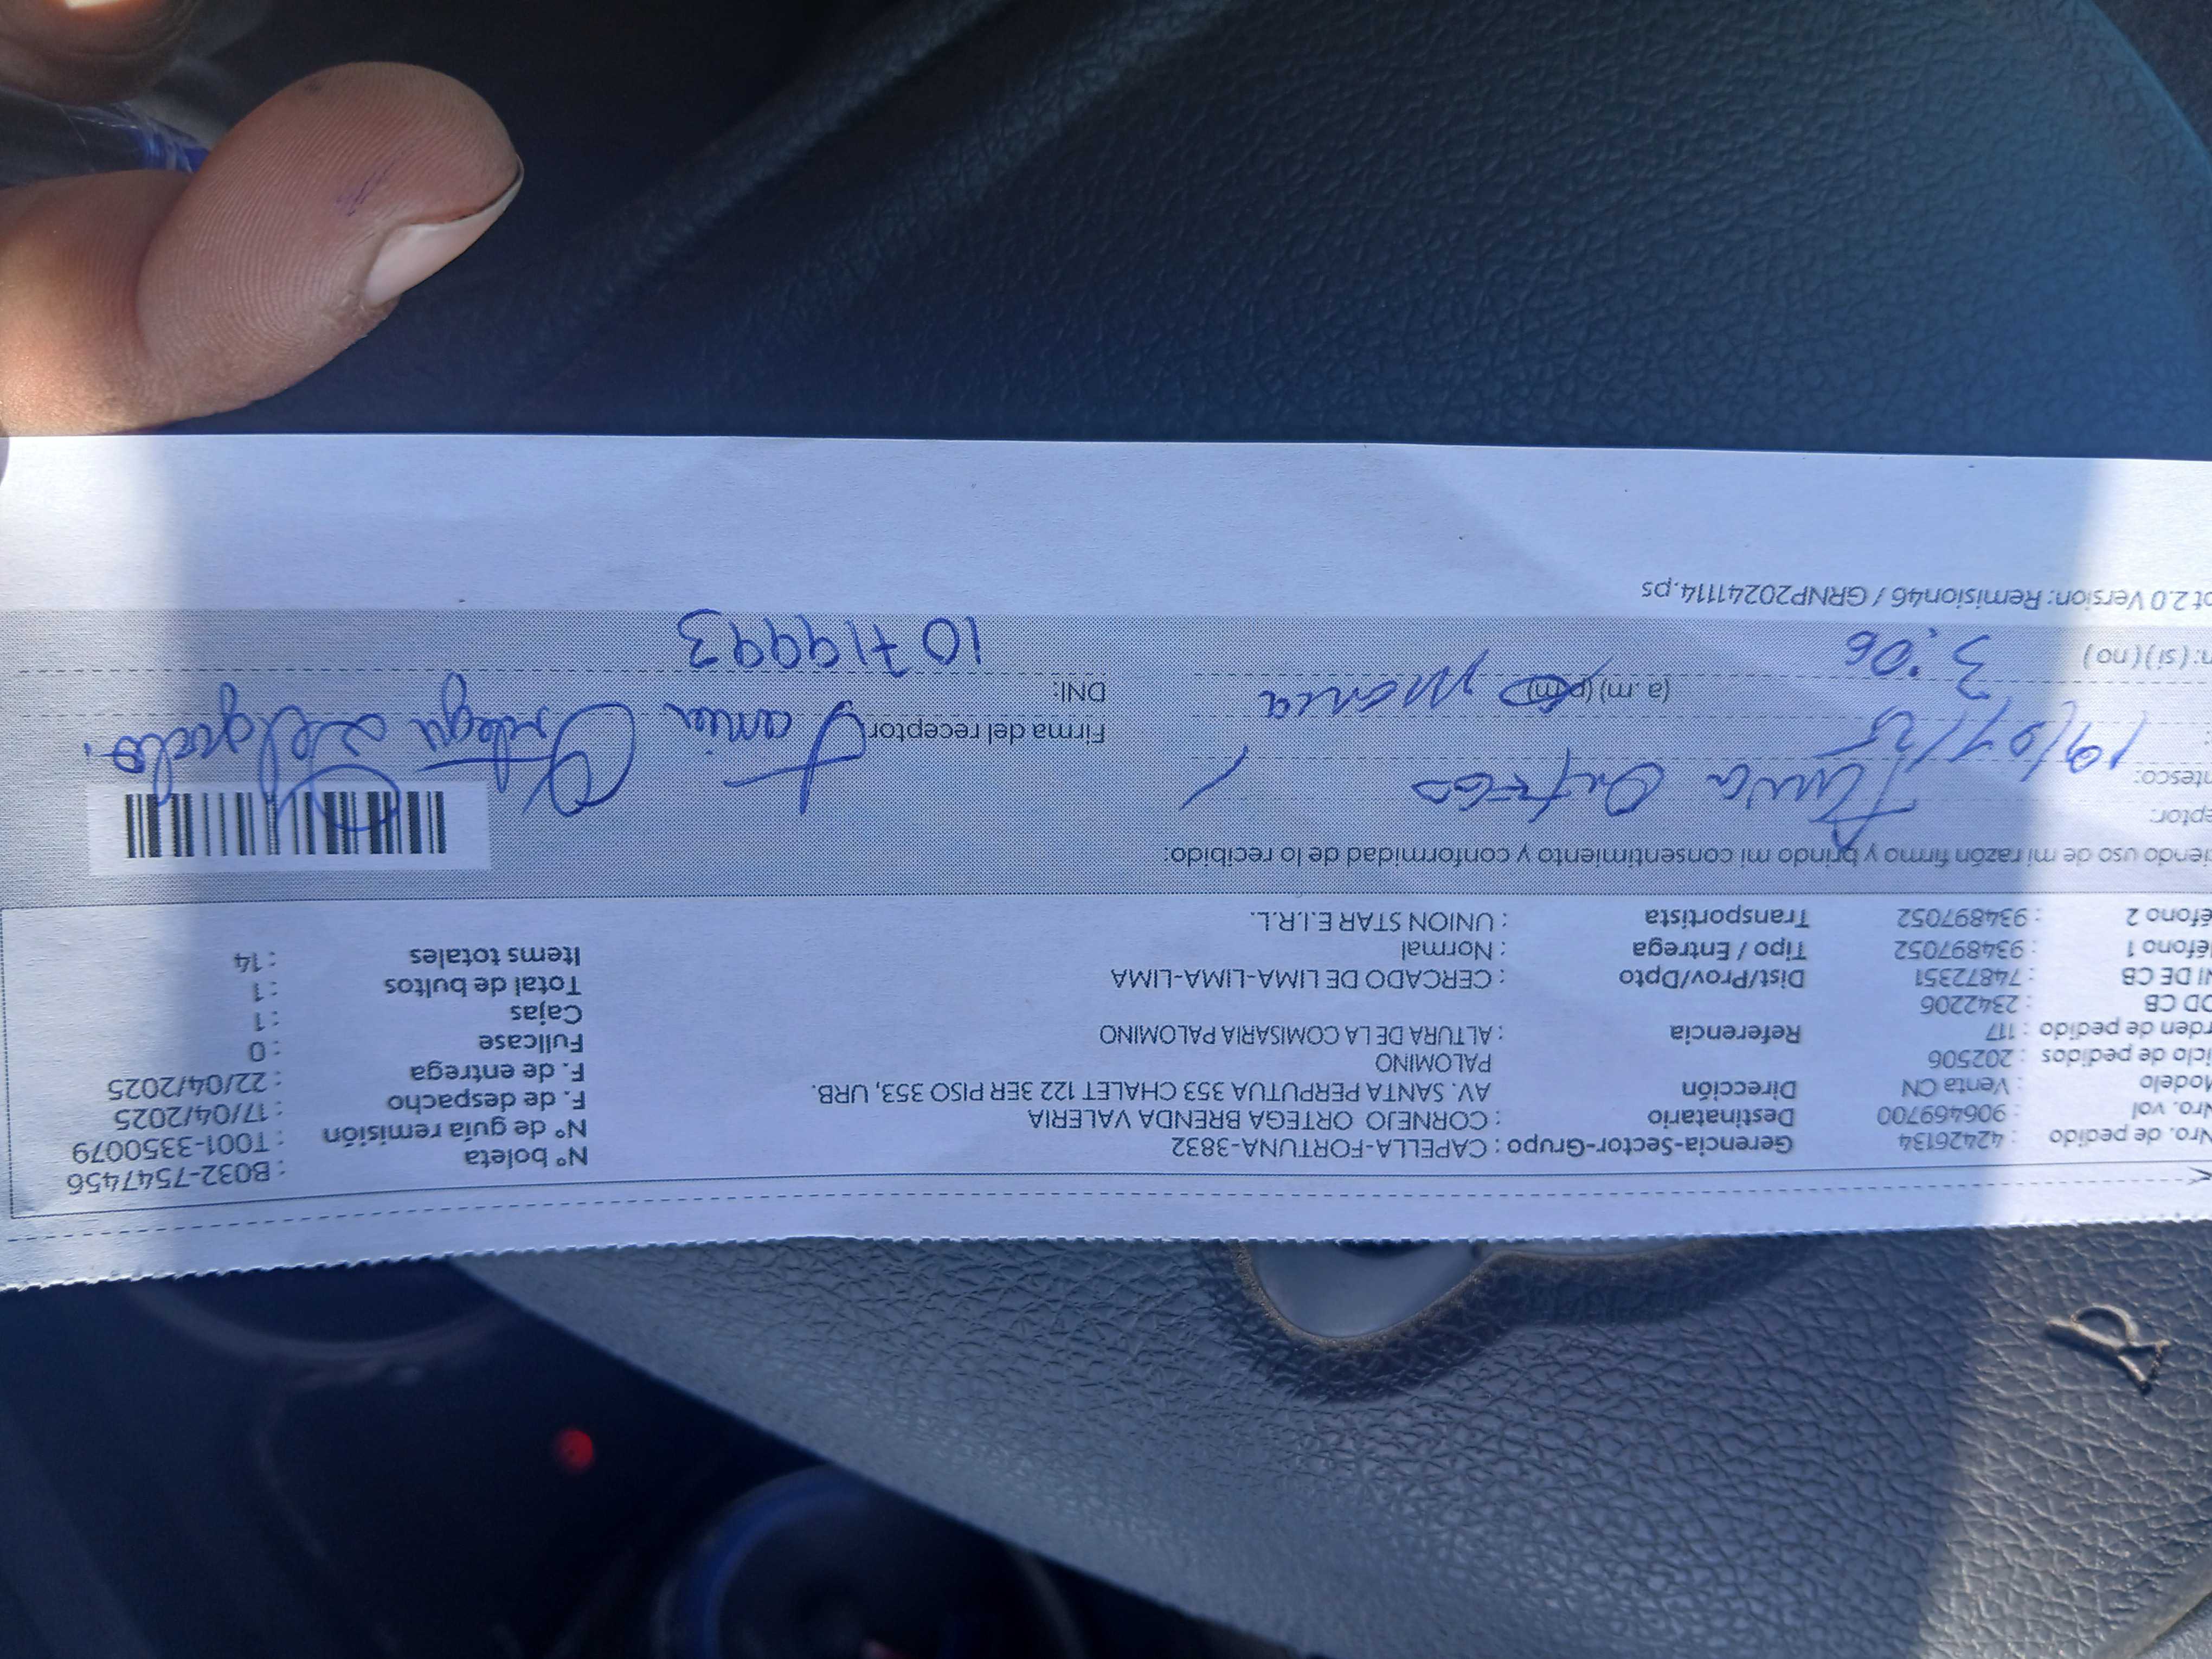 Nro. de pedido : 42426134 Gerencia-Sector-Grupo : CAPELLA-FORTUNA-3832 N° boleta : B032-7547456
Nro. vol : 906469700 Destinatario : CORNEJO ORTEGA BRENDA VALERIA N° de guía remisión : T001-3350079
Modelo : Venta CN Dirección AV. SANTA PERPUTUA 353 CHALET 122 3ER PISO 353, URB. F. de despacho : 17/04/2025
iclo de pedidos : 202506 PALOMINO F. de entrega : 22/04/2025
rden de pedido : 117 Referencia : ALTURA DE LA COMISARIA PALOMINO Fullcase : 0
OD CB : 2342206 Cajas : 1
NI DE CB : 74872351 Dist/Prov/Dpto : CERCADO DE LIMA-LIMA-LIMA Total de bultos : 1
léfono 1 : 934897052 Tipo / Entrega : Normal Items totales : 14
éfono 2 : 934897052 Transportista : UNION STAR E.I.R.L.
iendo uso de mi razón firmo y brindo mi consentimiento y conformidad de lo recibido:
eptor:
ntesco:
: 19/04/25 Firma del receptor Javier Ortega Delgado.
n: (si) (no) 3:06 (a.m) (p.m) DNI: 10719993
ot 2.0 Version: Remision46 / GRNP20241114.ps